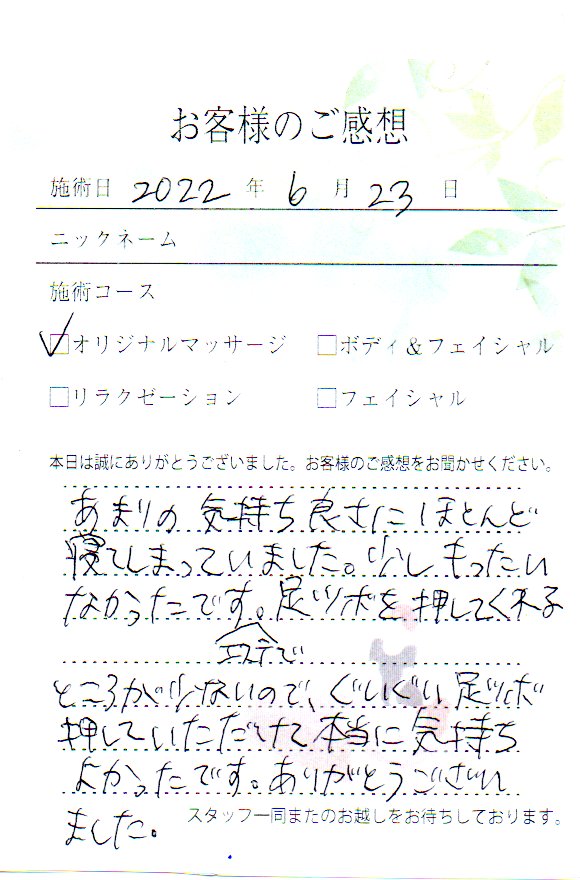 お客様のご感想
施術日 2022 年 6 月 23 日
ニックネーム
施術コース
オリジナルマッサージ ボディ＆フェイシャル
リラクゼーション フェイシャル
本日は誠にありがとうございました。お客様のご感想をお聞かせください。
あまりの気持ち良さにほとんど
寝てしまっていました。少しもったい
なかったです。足ツボを押してくれる
エステで
ところが少ないので、ぐいぐい足ツボ
押していただけて本当に気持ち
よかったです。ありがとうござい
ました。
スタッフ一同またのお越しをお待ちしております。